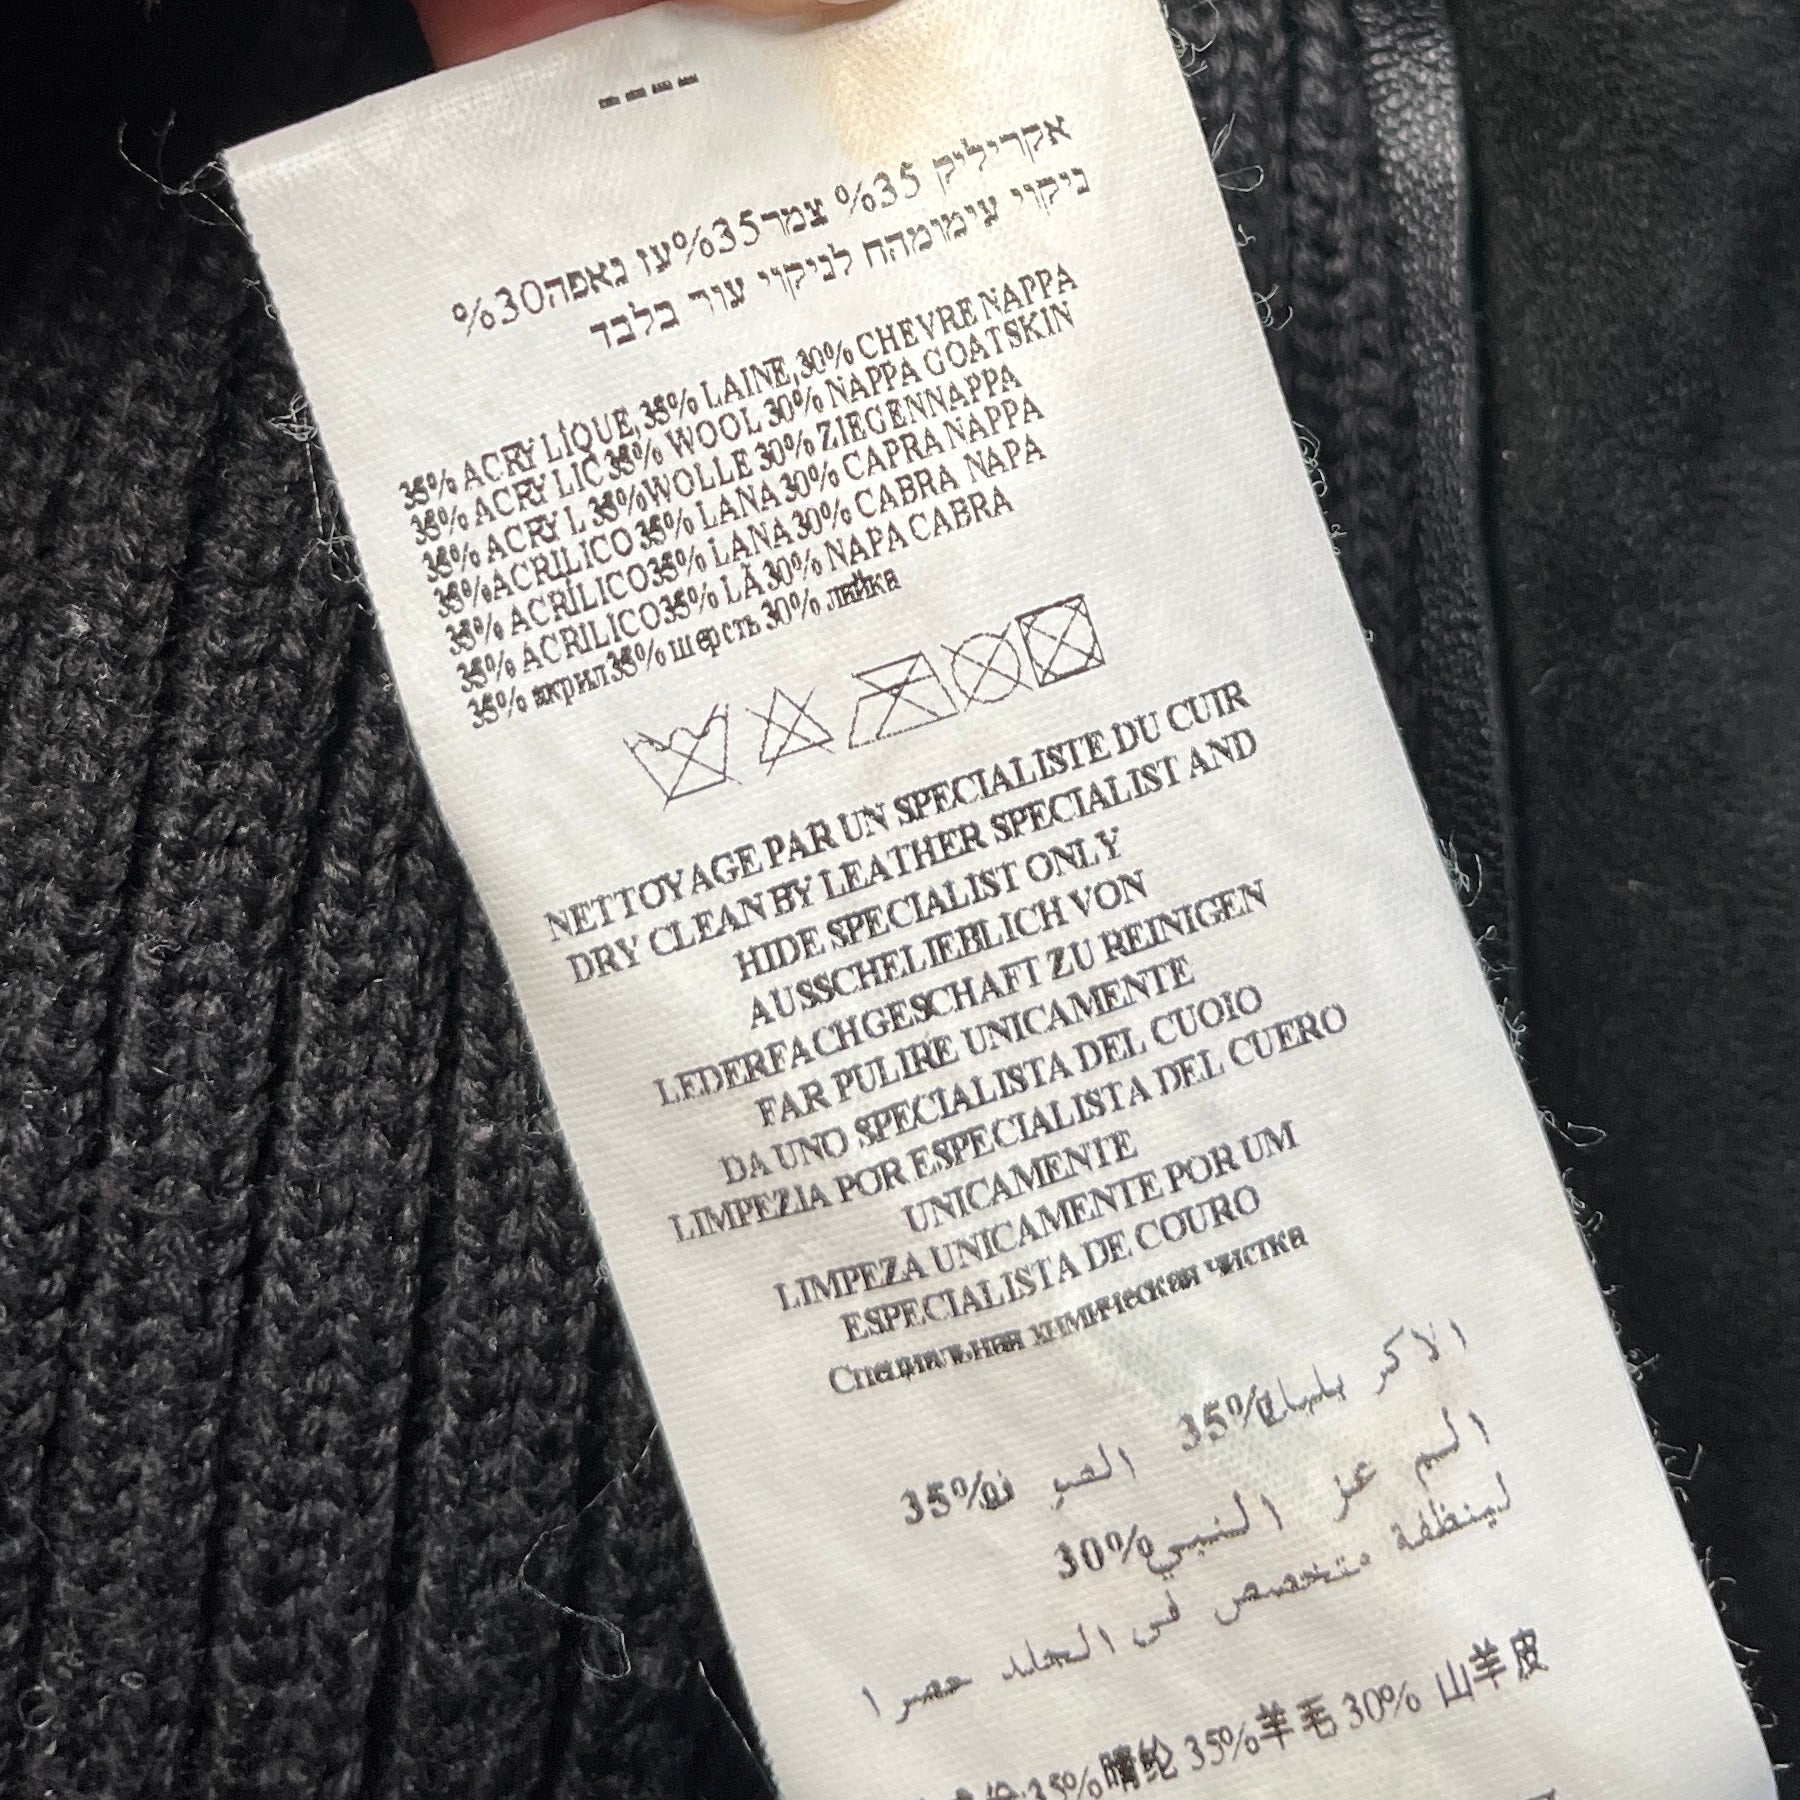 אקריליק 35% צמר35%עז נאפה30%
ניקוי עימומהח לניקוי עור בלבד
35% ACRYLIQUE,35% LAINE,30% CHEVRE NAPPA
35% ACRYLIC35% WOOL30% NAPPA GOATSKIN
35% ACRYL35%WOLLE30% ZIEGENNAPPA
35%ACRILICO35% LANA30% CAPRA NAPPA
35% ACRÍLICO35% LANA30% CABRA NAPA
35% ACRILICO35% LÃ30% NAPA CABRA
35% акрил35% шерсть30% лайка
NETTOYAGE PAR UN SPECIALISTE DU CUIR
DRY CLEAN BY LEATHER SPECIALIST AND
HIDE SPECIALIST ONLY
AUSSCHELIEBLICH VON
LEDERFACHGESCHAFT ZU REINIGEN
FAR PULIRE UNICAMENTE
DA UNO SPECIALISTA DEL CUOIO
LIMPEZIA POR ESPECIALISTA DEL CUERO
UNICAMENTE
LIMPEZA UNICAMENTE POR UM
ESPECIALISTA DE COURO
Специальная химическая чистка
35% 35%
30%
لينظفة متخصص في الجلد حصرا
35%晴纶35%羊毛30% 山羊皮